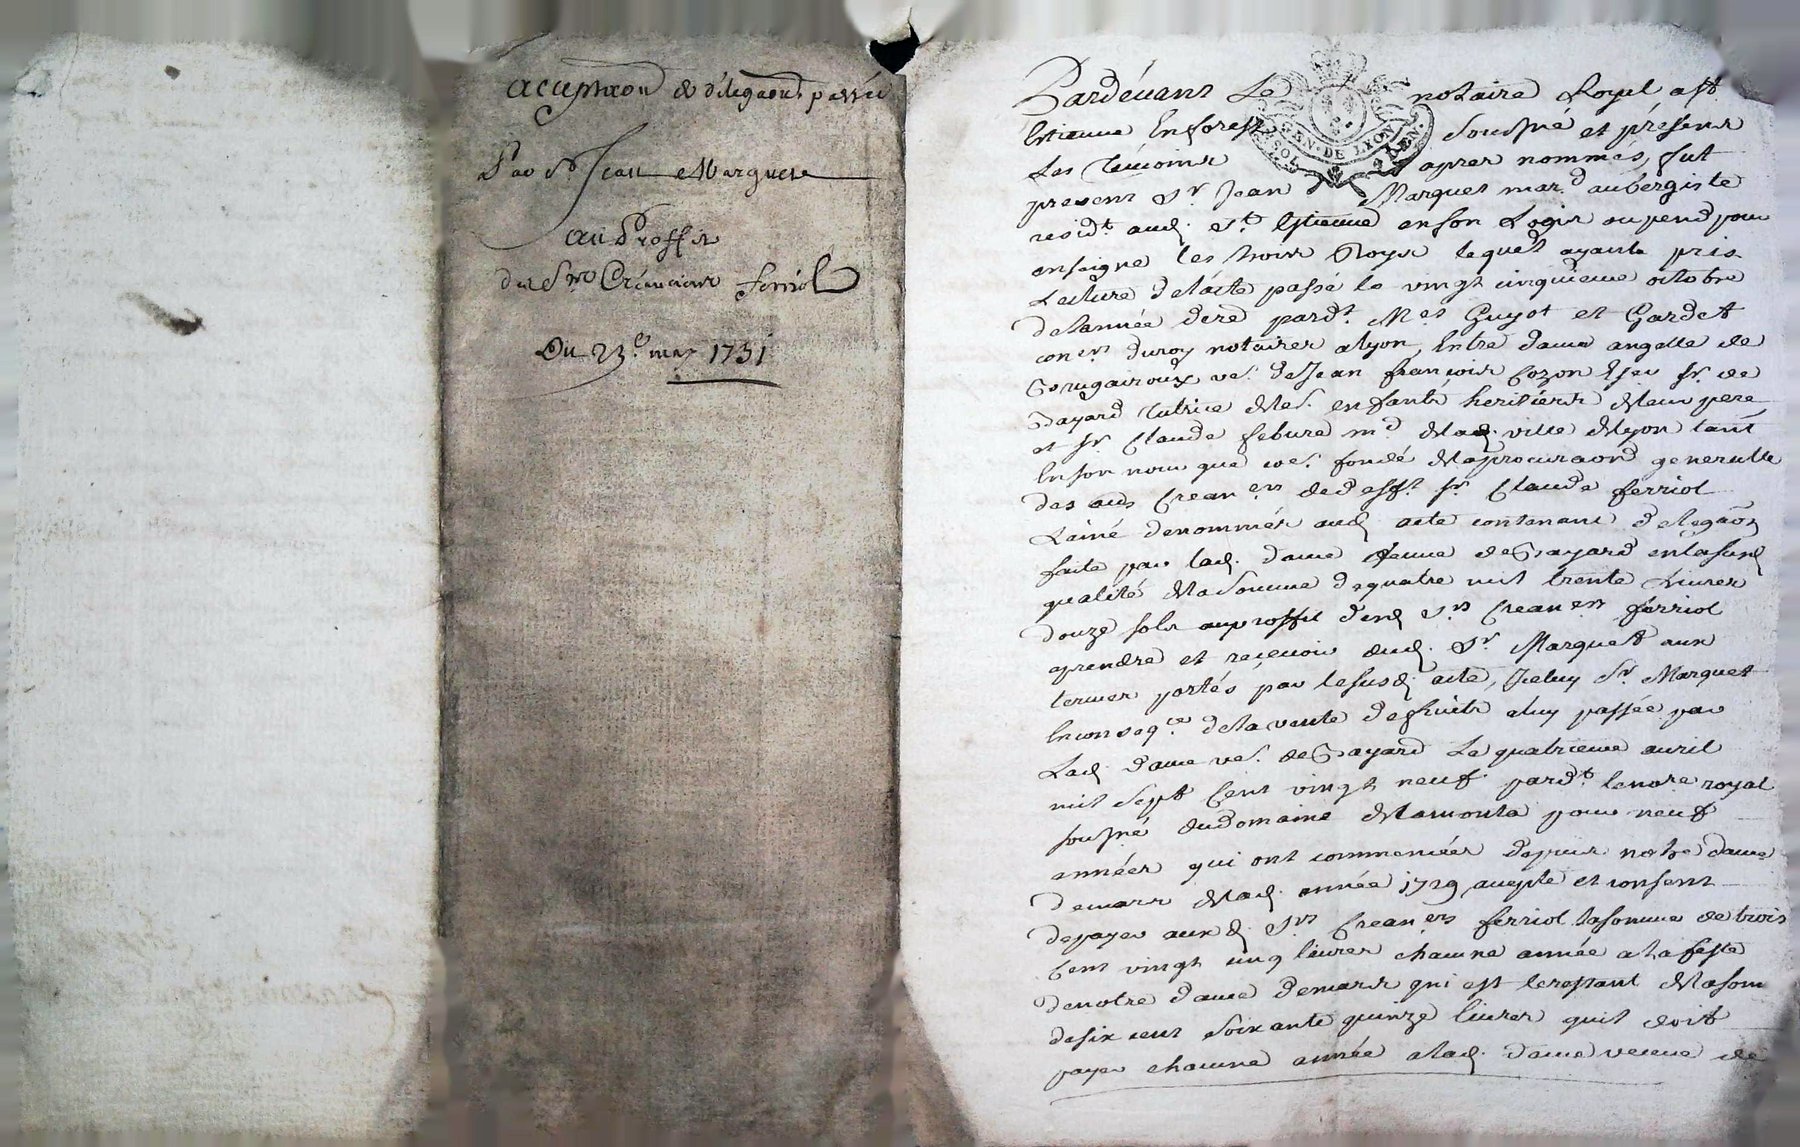 acceptaon & delegaon passée
Par Sr Jean Marquet
au Proffit
des Srs Créanciers ferriol
Du 23e may 1731
Pardevant Le notaire Royal a St
Estienne En forest soussné et présens
Les temoins apres nommés, fut
present Sr Jean Marquet mard aubergiste
residt aud. St Estienne en son Logis ou pend pour
enseigne les trois Roys lequel ayant pris
Lecture de lacte passé le vingt cinquieme octobre
de lannée dere pardt Mes Guyot et Gardet
coners du roy notaires a lyon, Entre dame angelle de
ve. de Jean françois Cozon Eser sr de
Bayard tutrice de ses enfants heritiers de leur pere
et sr Claude febure md de lad. ville de lyon tant
En son nom que coe. fondé de la procuraon generalle
des aus Creaners de defft sr Claude ferriol
Lainé denommés aud. acte contenant delegaon
faite par lad. dame veuve de Bayard en lasusd.
qualité de la somme de quatre mil trente Livres
douze sols au proffit desd. Srs Creaners ferriol
a prendre et recevoir dud. Sr Marquet aux
termes portés par le susd. acte, Iceluy Sr Marquet
En conseqce de la vente de fruits a luy passée par
Lad. dame ve. de Bayard Le quatrieme auril
mil sept Cent vingt neuf pardt le nore royal
soussné du domaine de la monta pour neuf
années qui ont commencées depuis notre dame
de mars de lad. année 1729, accepte et consent
de payer aux d. Srs Creaners ferriol la somme de trois
Cent vingt cinq livres chacune année a la feste
de notre dame de mars qui est le restant de la som
de six cent soixante quinze livres quil doit
payer chacune année a lad. dame veuve de
GEN. DE LYON